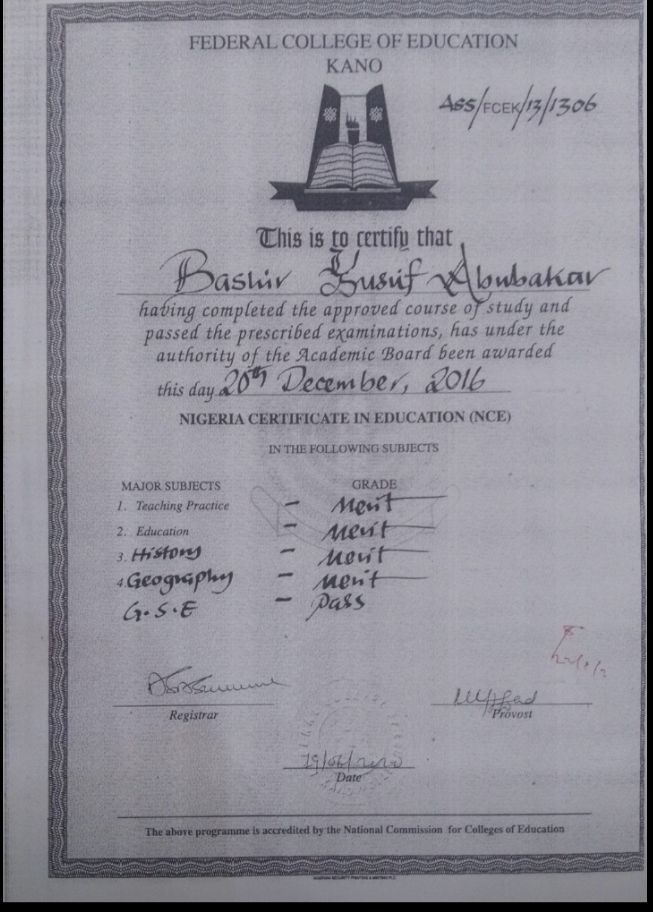 FEDERAL COLLEGE OF EDUCATION
KANO
ASS/FCEK/13/1306
This is to certify that
Bashir Yusuf Abubakar
having completed the approved course of study and
passed the prescribed examinations, has under the
authority of the Academic Board been awarded
this day 20th December, 2016
NIGERIA CERTIFICATE IN EDUCATION (NCE)
IN THE FOLLOWING SUBJECTS
MAJOR SUBJECTS GRADE
1. Teaching Practice - Merit
2. Education - Merit
3. History - Merit
4. Geography - Merit
G.S.E - Pass
Registrar
Provost
19/06/2020
Date
The above programme is accredited by the National Commission for Colleges of Education